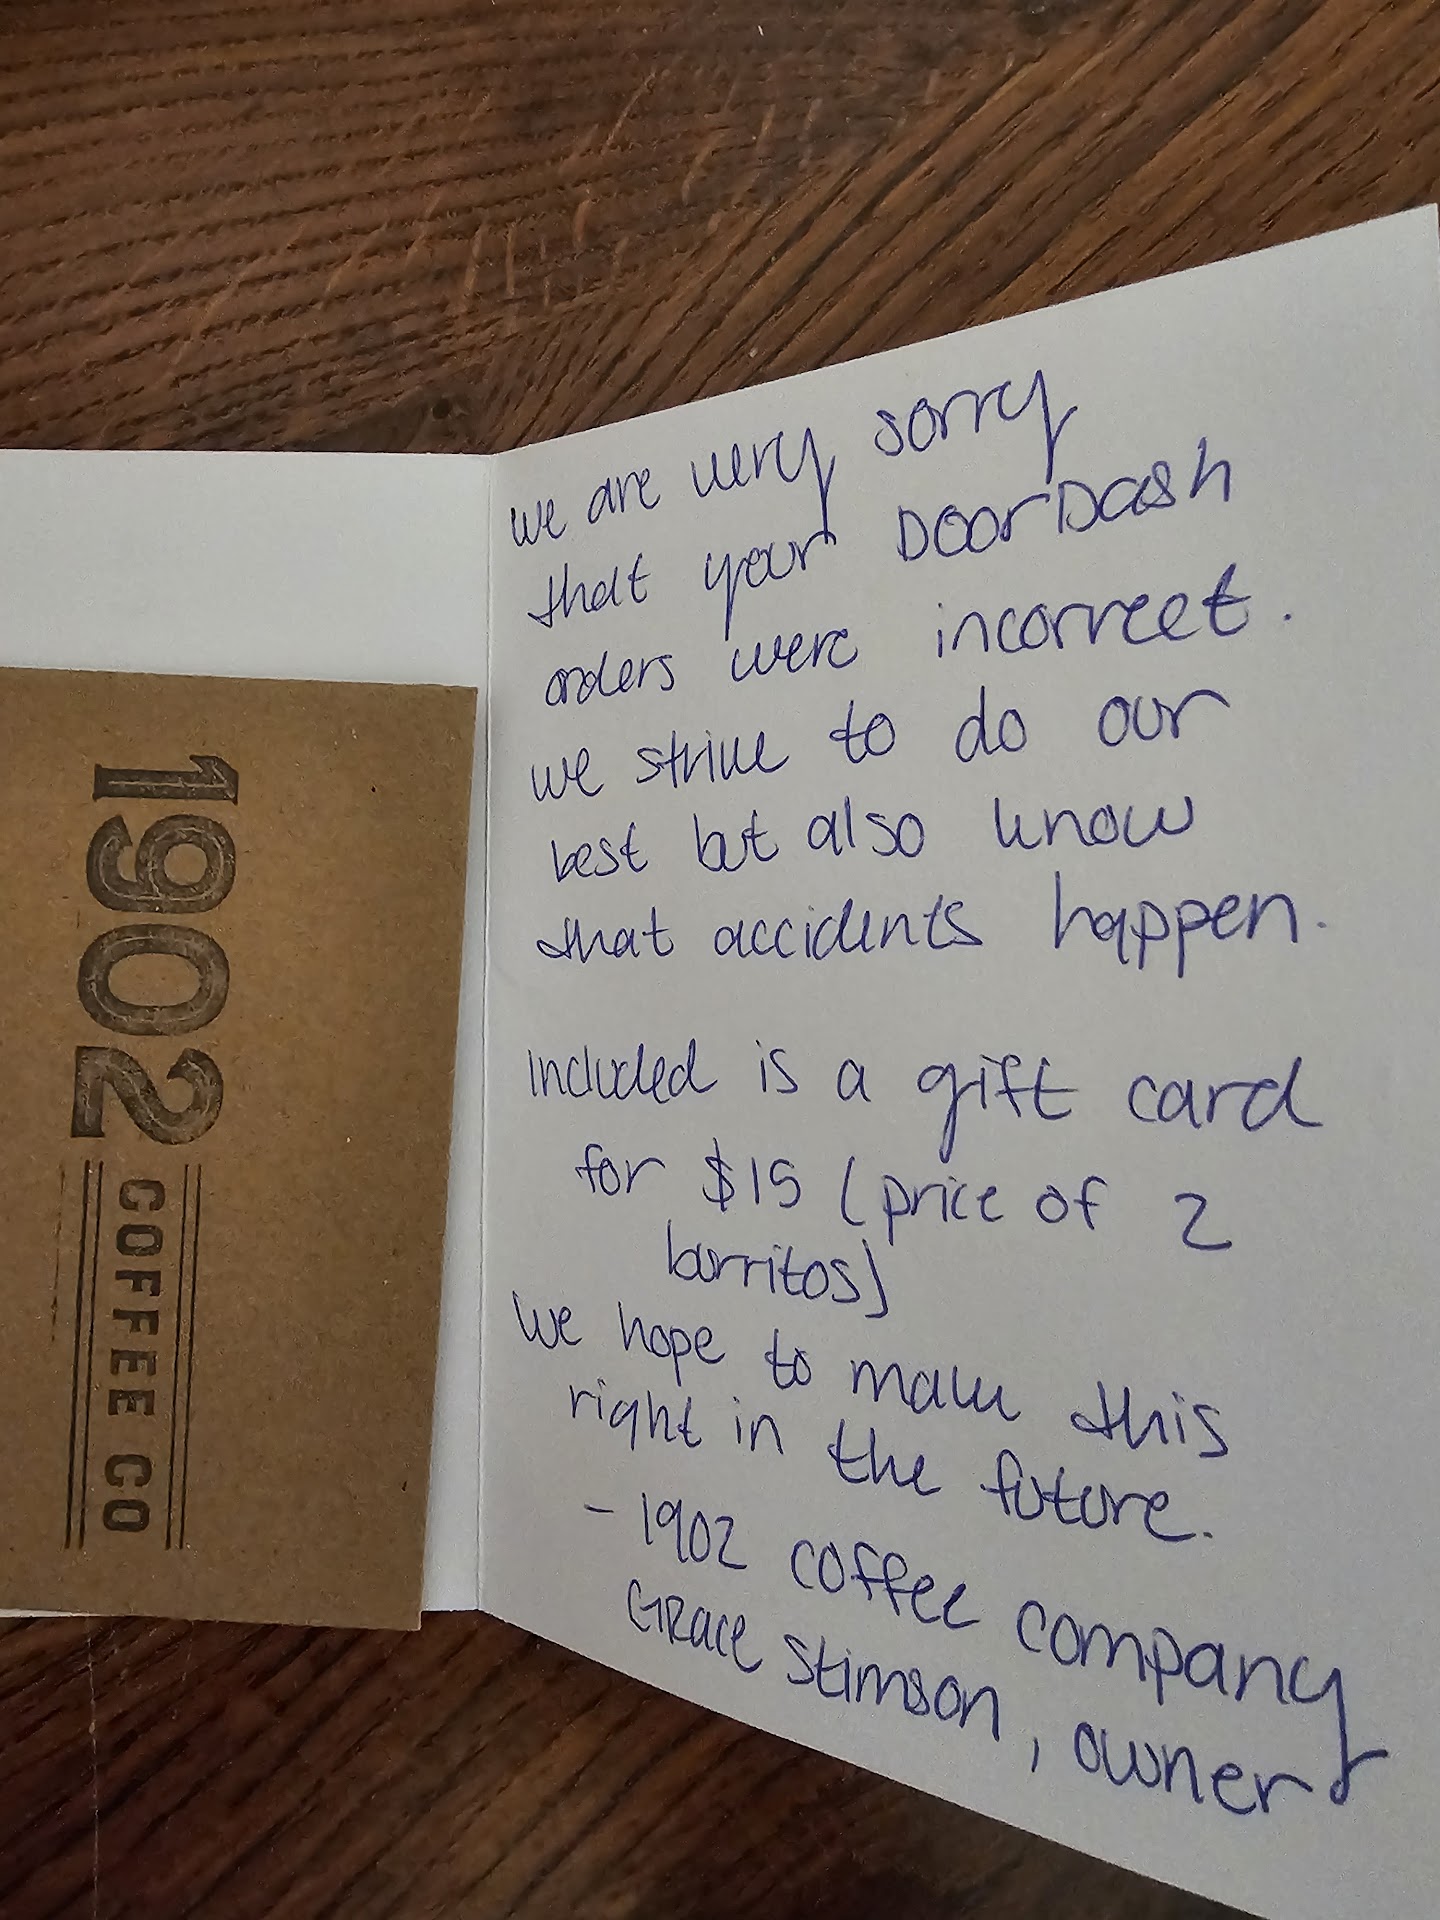 1902
COFFEE CO
we are very sorry
that your DoorDash
orders were incorrect.
we strive to do our
best but also know
that accidents happen.
Included is a gift card
for $15 (price of 2
burritos)
We hope to make this
right in the future.
- 1902 coffee company
Grace Stimson, owner